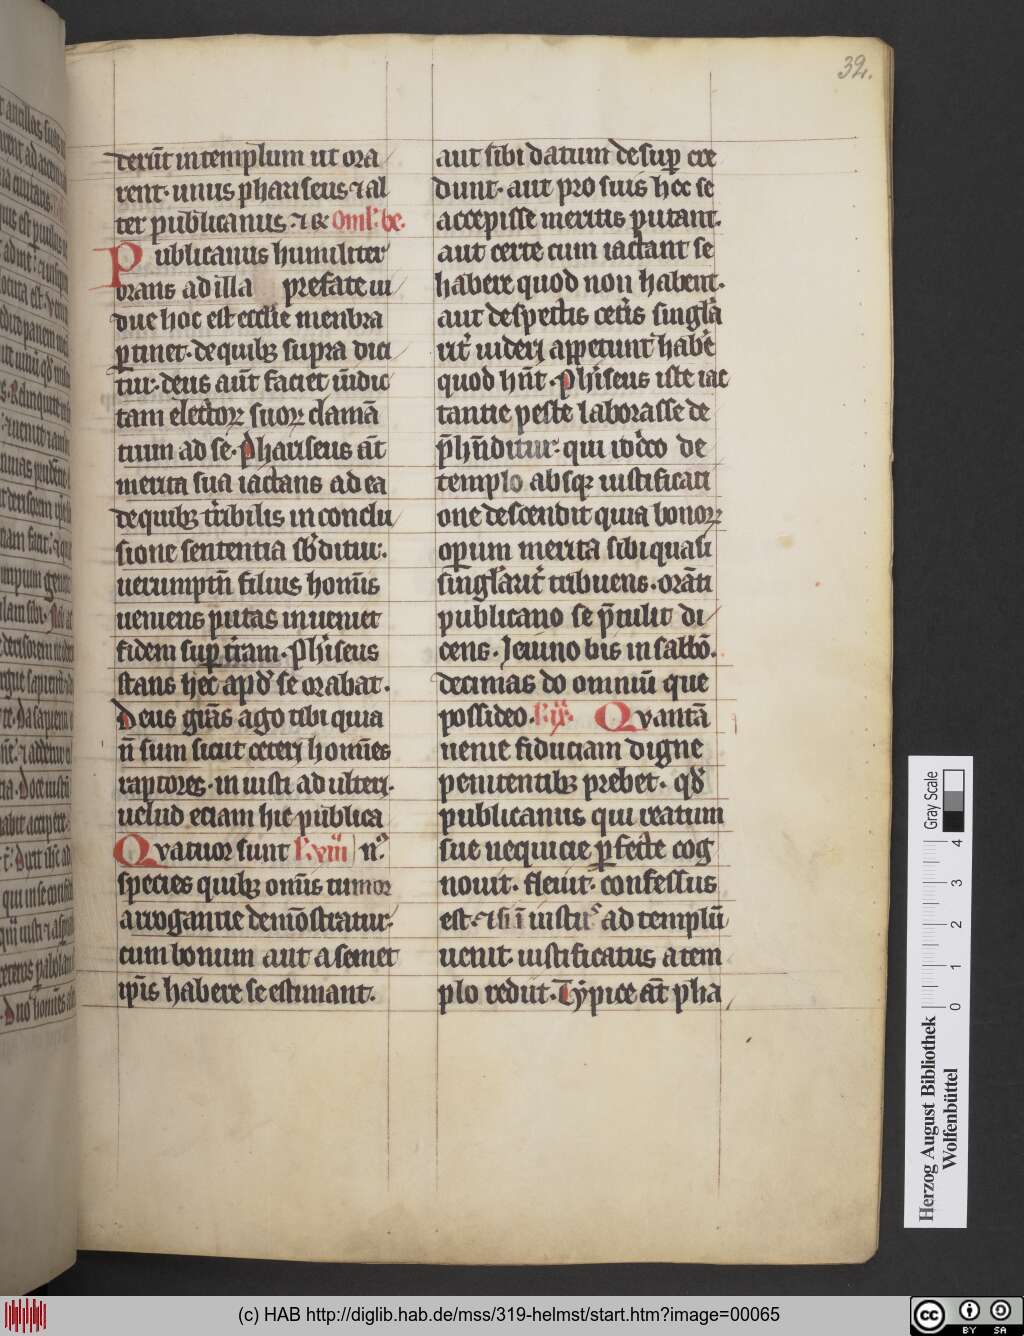 32.
derūt in templum ut ora
rent· unus phariseus ⁊ al
ter publicanus· ⁊ Omł· be.
Publicanus humiliter
orans ad illa prefate ui
due hoc est eccl̄ie menbra
ꝑtinet· de quibꝫ supra dici
tur· deus aūt faciet uīdic
tam electoꝝ suoꝝ clamā
tium ad se· Phariseus āt
merita sua iactans ad ea
de quibꝫ tribilis in conclu
sione sententia sb̄ditur.
uerumptn̄ filius homīs
ueniens putas inueniet
fidem suꝑ tr̄am· Phīseus
stans hec apd̄ se orabat.
Deus gr̄as ago tibi quia
n̄ sum sicut ceteri homīes
raptores· iniusti adulteri.
uelud eciam hic publica
Quatuor sunt n°.
species quibꝫ om̄is tumor
arrogantie demōstratur.
cum bonum aut a semet
ip̄is habere se estimant.
aut sibi datum desuꝑ cre
dunt· aut pro suis hoc se
accepisse meritis putant.
aut certe cum iactant se
habere quod non habent.
aut despectis cet̄is singla
rit̄ uideri appetunt habē
quod hn̄t· Phīseus iste iac
tantie peste laborasse de
p̄hn̄ditur· qui iōdco de
templo absqꝫ iustificati
one descendit quia bonoꝝ
oꝑum merita sibi quasi
singlarit̄ tribuens· orāti
publicano se p̄tulit di
cens· Ieiuno bis in sabbō.
decimas do omniū que
possideo. Quantā
uenie fiduciam digne
penitentibꝫ prebet· qd̄
publicanus qui reatum
sue nequicie ꝑfecte cog
nouit· fleuit· confessus
est· ⁊ si īiustus ad templū
uenit· iustificatus a tem
plo rediit· Typice āt pha
Herzog August Bibliothek
Wolfenbüttel
0 1 2 3 4
Gray Scale
(c) HAB http://diglib.hab.de/mss/319-helmst/start.htm?image=00065
cc BY SA